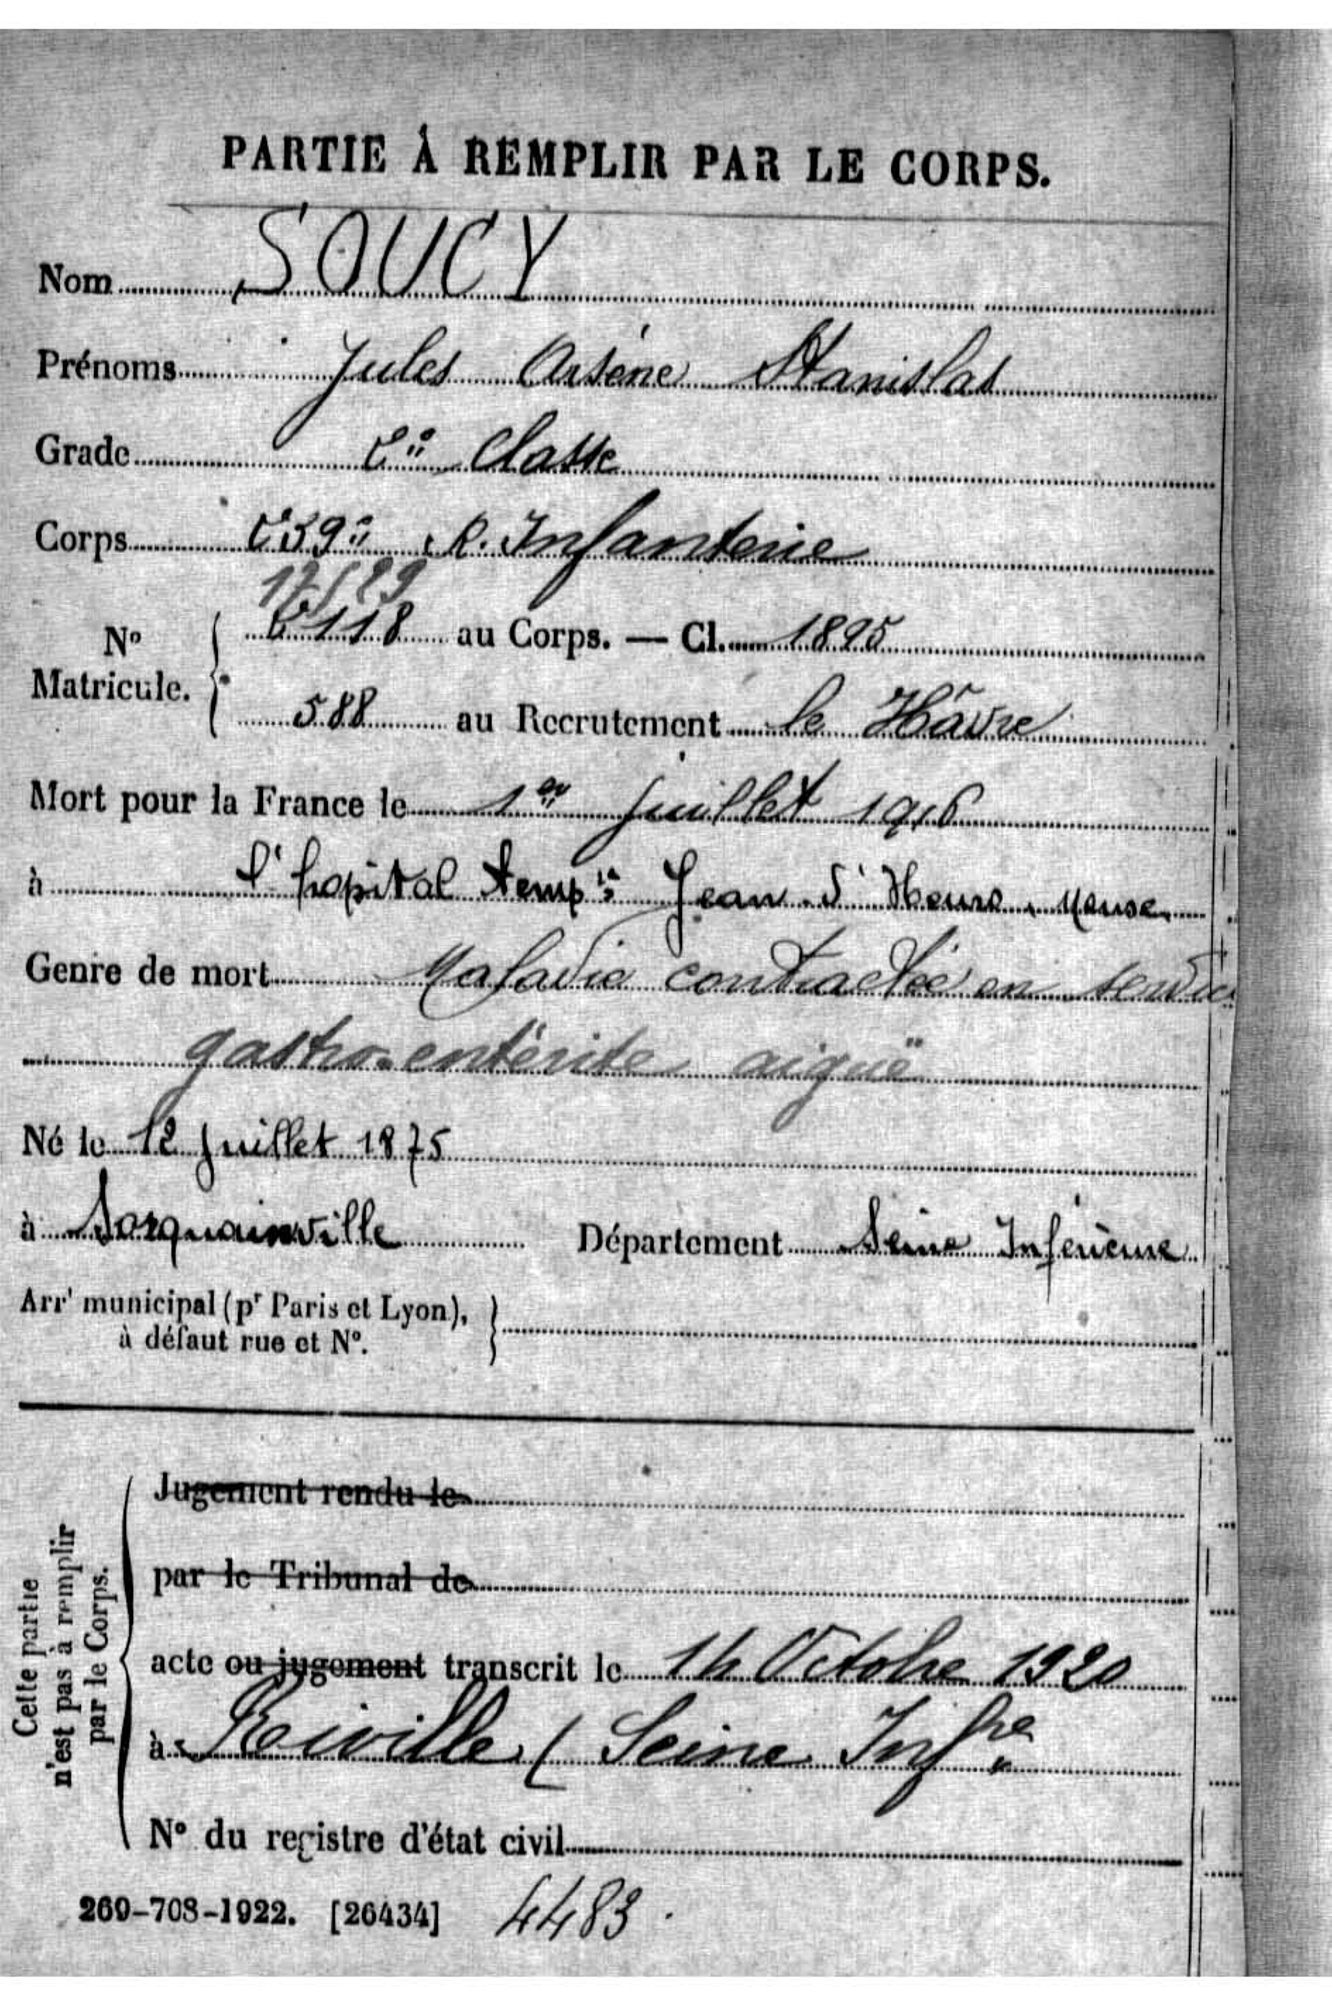 PARTIE À REMPLIR PAR LE CORPS.
Nom SOUCY
Prénoms Jules Arsène Stanislas
Grade 2è Classe
Corps 239è R. Infanterie
17529
No Matricule. 2118 au Corps. — Cl. 1895
588 au Recrutement le Hâvre
Mort pour la France le 1er Juillet 1916
à l'hopital tempre Jean d'Heurs. Meuse.
Genre de mort Maladie contractée en service
gastro-entérite aiguë
Né le 12 Juillet 1875
à Sorquainville Département Seine Inférieure
Arrt municipal (pr Paris et Lyon),
à défaut rue et No.
Cette partie
n'est pas à remplir
par le Corps.
Jugement rendu le
par le Tribunal de
acte ou jugement transcrit le 14 Octobre 1920
à (Seine Infre
No du registre d'état civil
269-708-1922. [26434] 4483